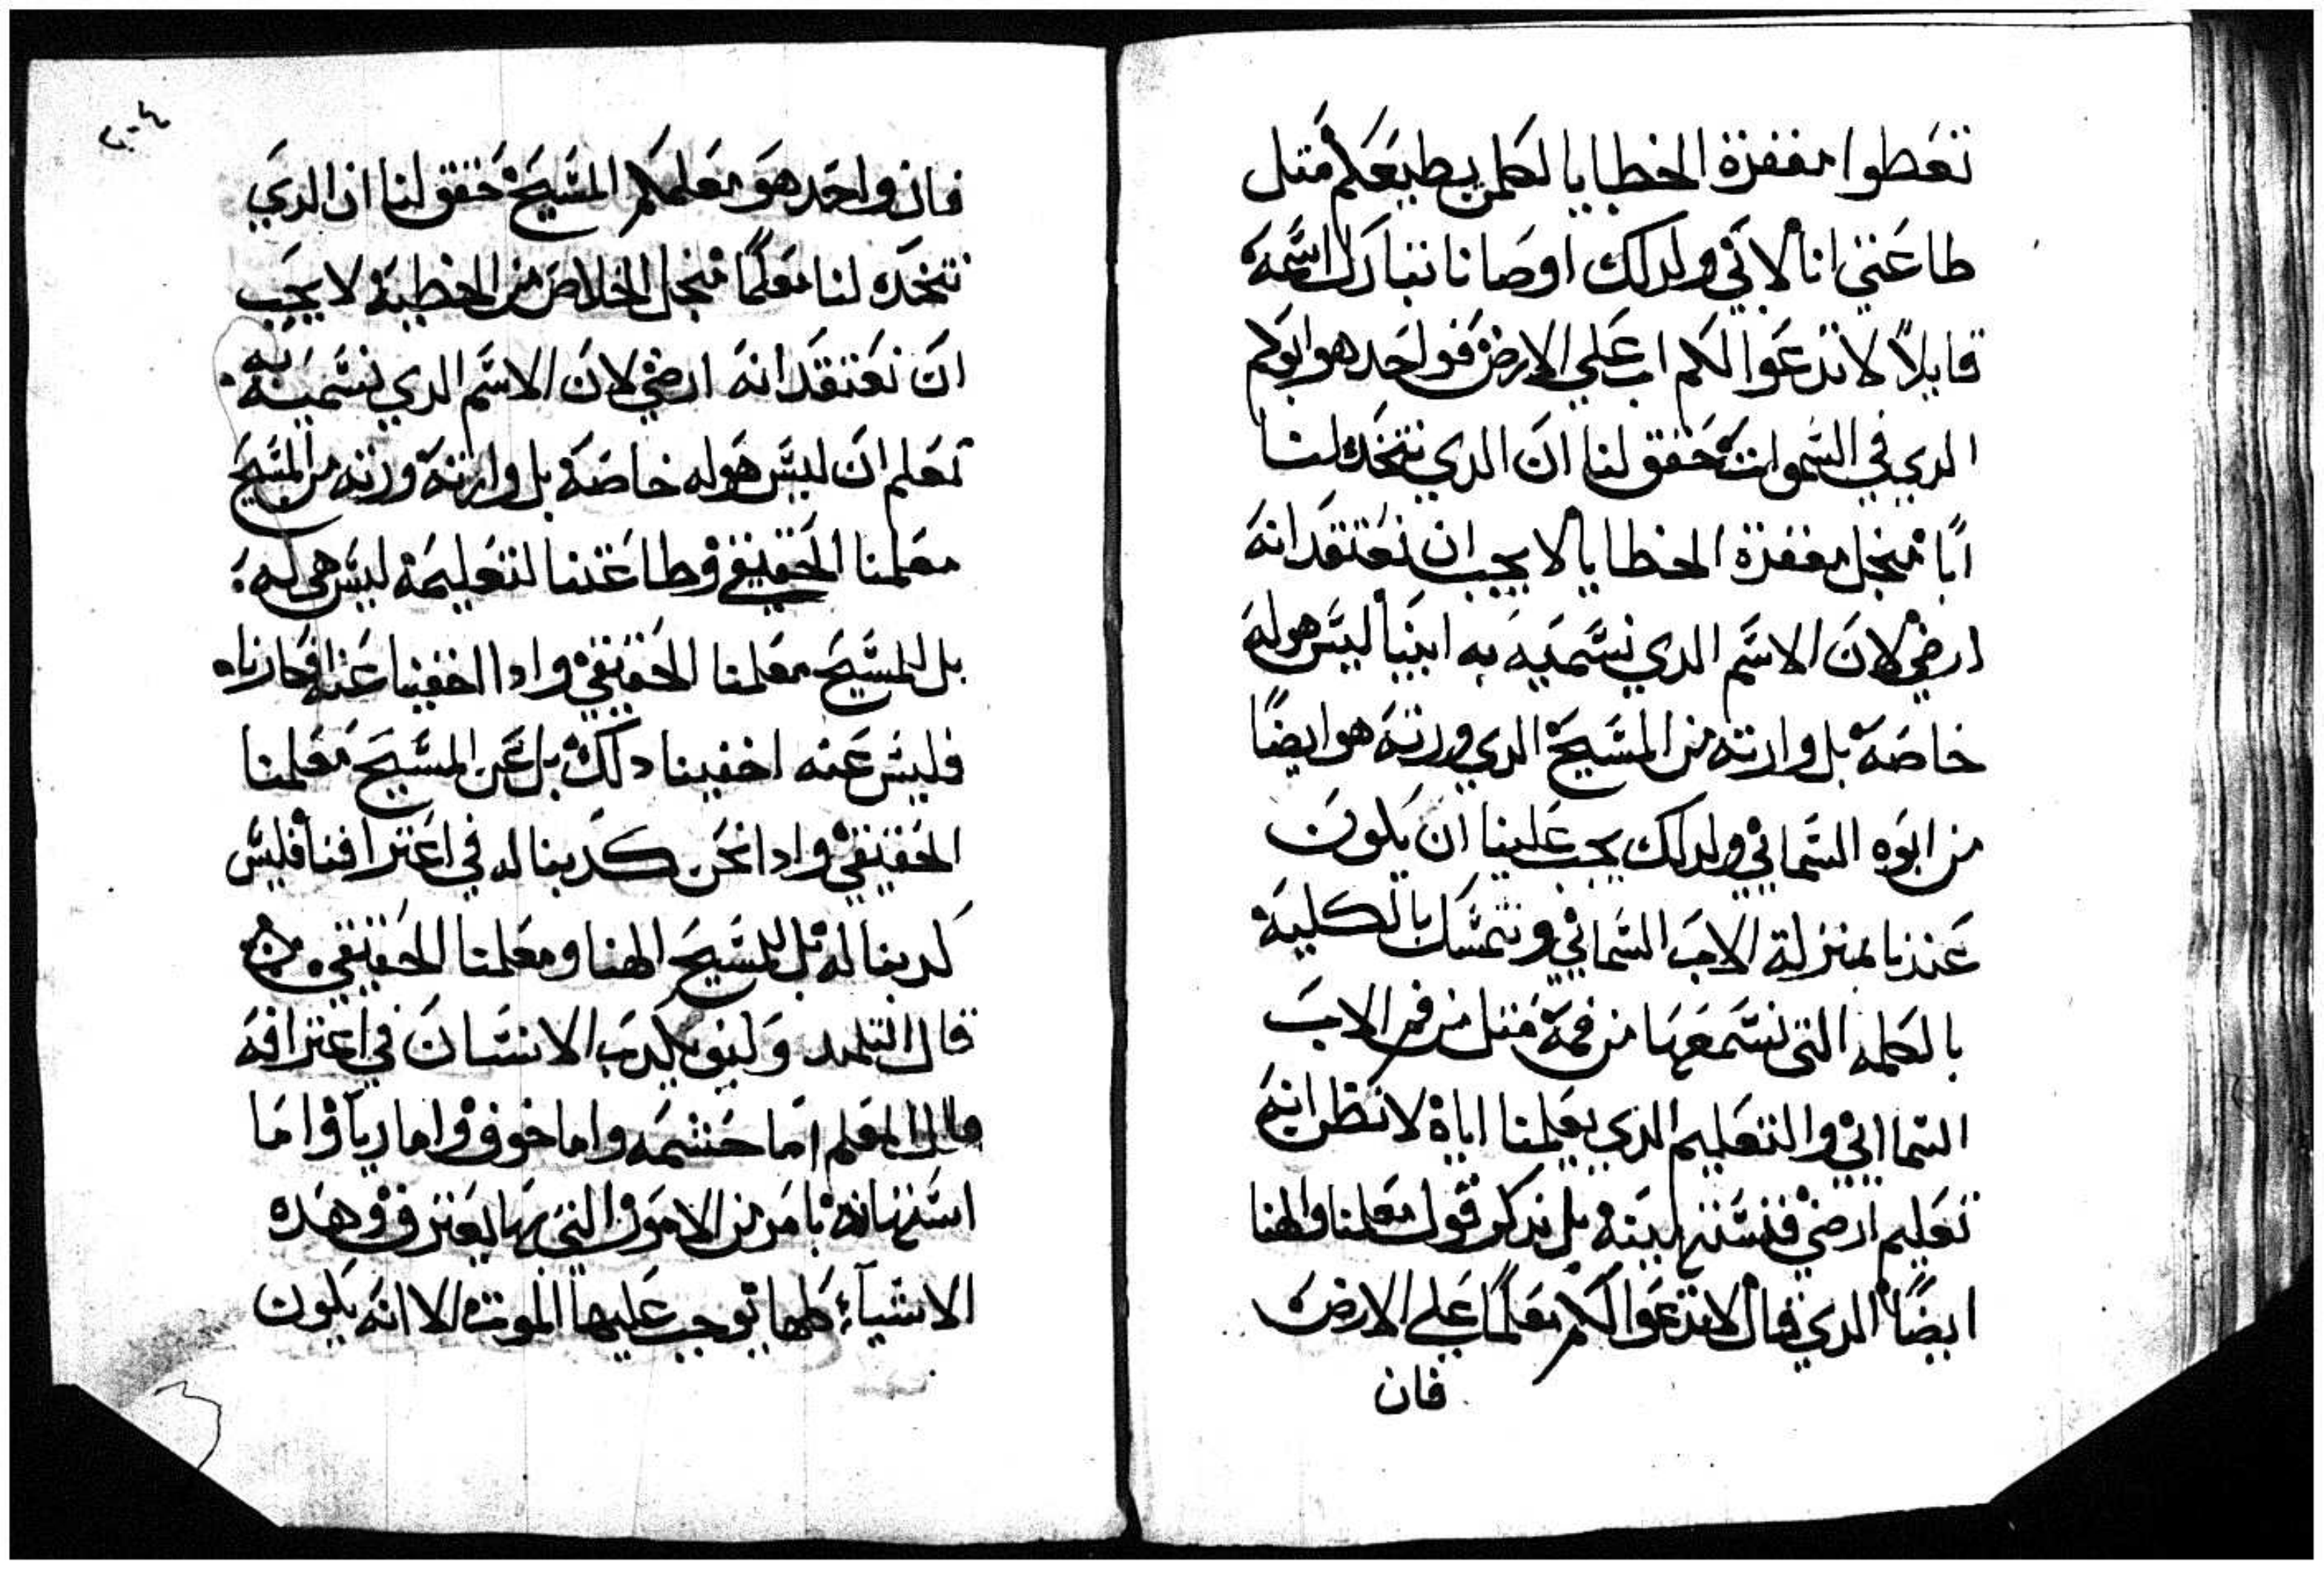 تعطوا مغفرة الخطايا لكلمن يطيعكم متل
طاعتي انا لابي ولدلك اوصانا تبارك اسمه
قايلاً لا تدعوا لكم اب علي الارض فواحد هو ابوكم
الدي في السموات حقق لنا ان الدي نتخده لنا
ابًا منجل مغفرة الخطايا لا يجب ان نعتقد انه
ارضي لان الاسم الدي نسميه به ابينا ليس هو له
خاصة بل وارته من المسيح الدي ورته هو ايضًا
من ابوه السماني ولدلك يجب علينا ان يكون
عندنا بمنزلة الاب السماني ونتمسك بالكلية
بالكلمه التي نسمعها من فمه متل من فم الاب
السماني والتعليم الدي يعلمنا اياه لا نظن انه
تعليم ارضي فنستهينه بل ندكر قول معلمنا والهنا
ايضًا الدي قال لا تدعوا لكم معلمًا علي الارض
فان
٢٠٤
فان واحد هو معلمكم المسيح حقق لنا ان الدي
نتخده لنا معلمًا منجل الخلاص من الخطية لا يجب
ان نعتقد انه ارضي لان الاسم الدي نسميه به
نعلم ان ليس هو له خاصة بل وارته ورته من المسيح
معلمنا الحقيقي وطاعتنا لتعليمه ليس هي له
بل للمسيح معلمنا الحقيقي وادا اخفينا عنه افكارناه
فليس عنه اخفينا دلك بل عن المسيح معلمنا
الحقيقي وادا نحن كدبنا له في اعترافنا فليس
كدبنا له بل للمسيح الهنا ومعلمنا الحقيقي
قال التلميد وكيف يكدب الانسان في اعترافه
قال المعلم اما حشمه واما خوف واما ريا واما
استهانه بامر من الامور التي بها يعترف وهده
الاشيآء كلها توجب عليها الموت الا انه يكون